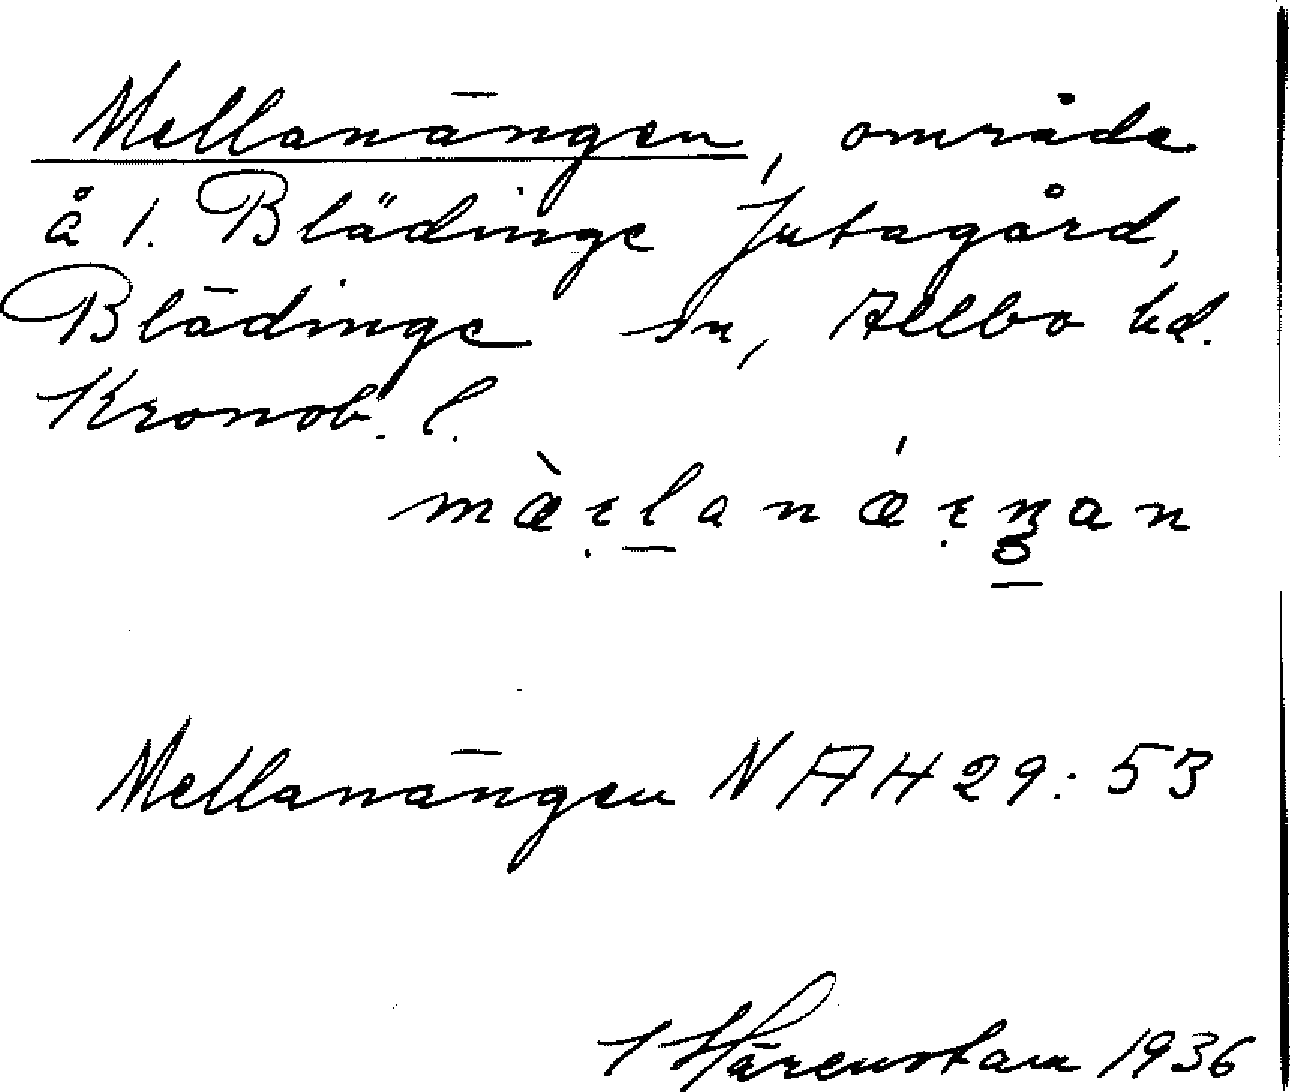 Mellanängen, område
å 1. Blädinge Jutagård,
Blädinge sn, Allbo hd.
Kronob. l.
Mellanängen NAH29:53
1936